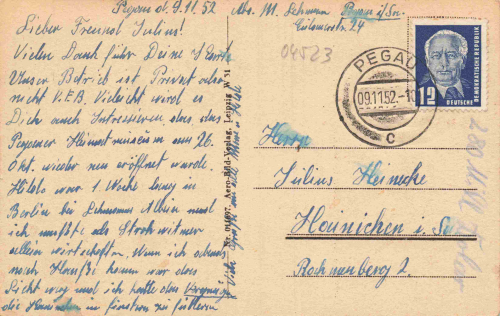 Pegau d. 9.11.52
Abs. M. Lehmann Pegau i/Sa.
24
Lieber Freund Julius!
Vielen Dank für Deine Karte
Unser Betrieb ist Privat also
nicht V.E.B. Vielleicht wird es
Dich auch Interessieren das das
Pegauer Heimatmuseum am 26.
Okt. wieder neu eröffnet wurde
Hilde war 1 Woche lang in
Berlin bei Lehmanns und
ich mußte als Strohwitwer
allein wirtschaften. Wenn ich abends
nach Hause kam war das
Licht weg und ich hatte das Vergnügen
die Hasen im finstern zu füttern
Viele Grüße
04523
PEGAU
09.11.52.-1
c
12
DEUTSCHE
DEMOKRATISCHE REPUBLIK
Aero-Bild-Verlag, Leipzig W 31
Herrn
Julius Heinecke
Hainichen i. Sa
2.